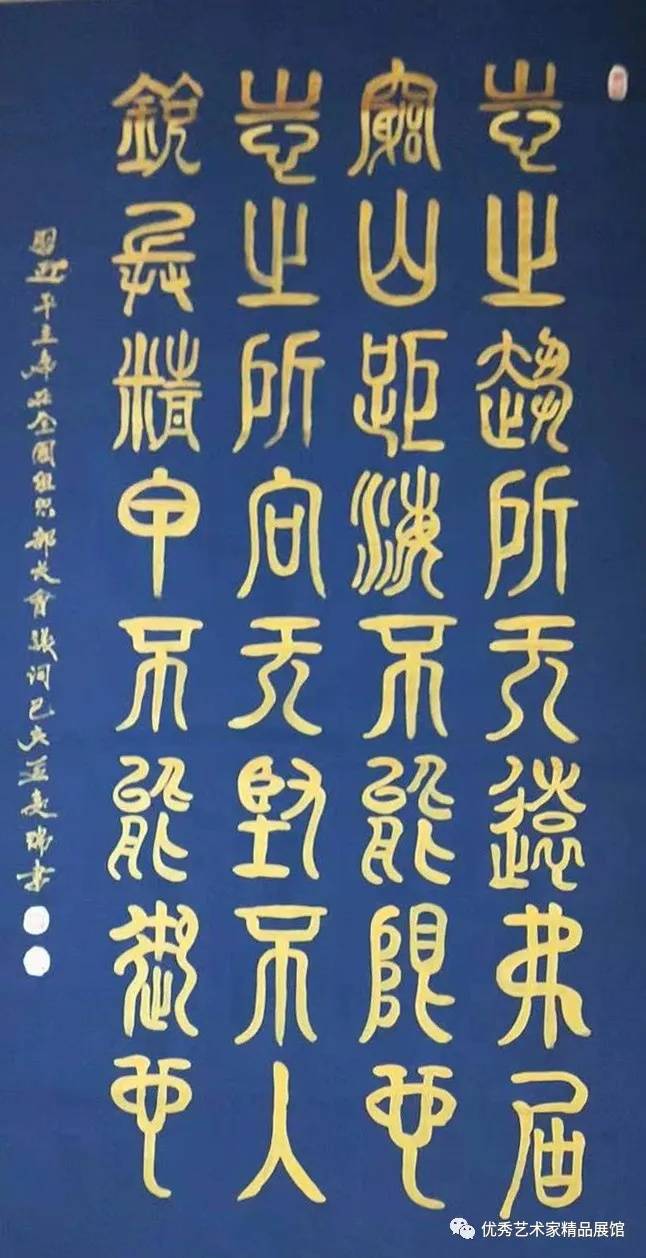 志之趨所无遠弗届
窮山距海不能限也
志之所向无堅不人
銳兵精甲不能御也
習近平主席在全國組织部长會議词己亥瑞書
优秀艺术家精品展馆